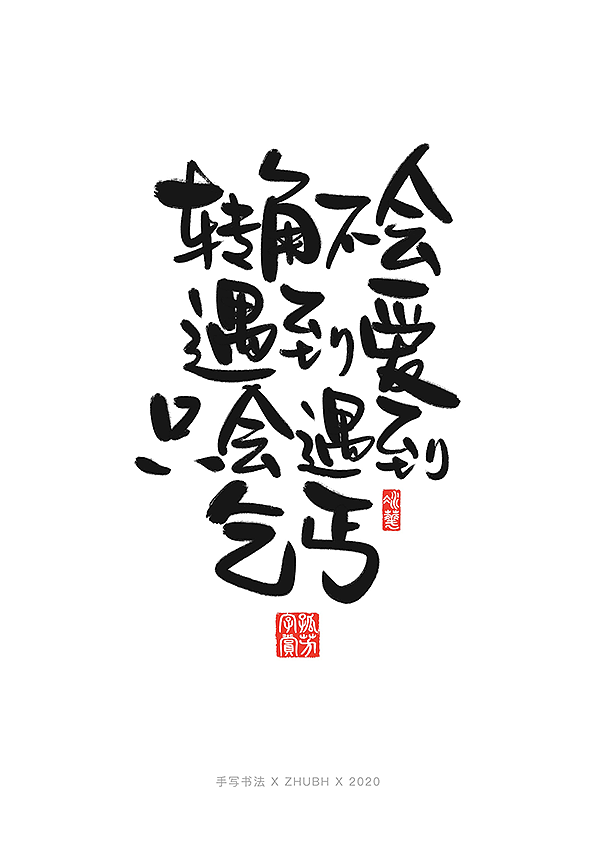 转角不会
遇到爱
只会遇到
乞丐
孤芳
字赏
手写书法 X ZHUBH X 2020